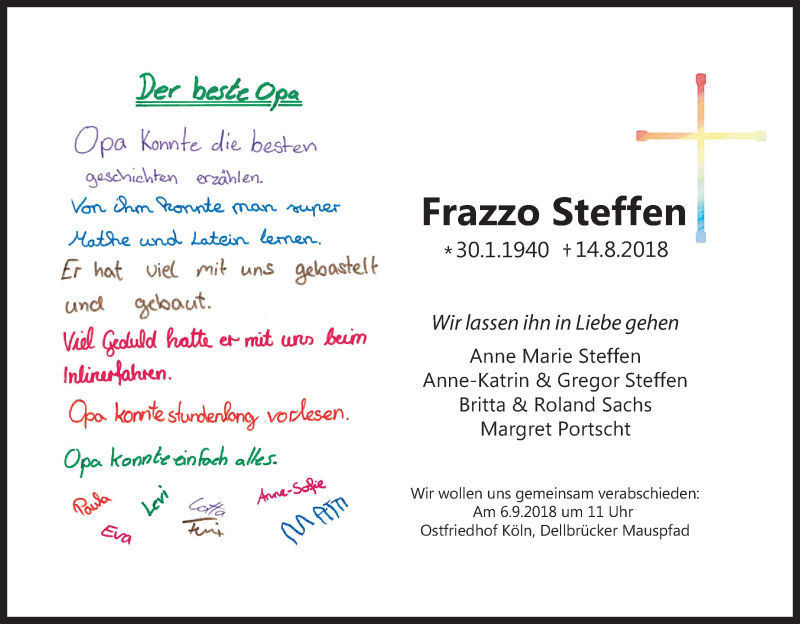 Der beste Opa
Opa konnte die besten
geschichten erzählen.
Von ihm konnte man super
Mathe und Latein lernen.
Er hat viel mit uns gebastelt
und gebaut.
Viel Geduld hatte er mit uns beim
Inlinerfahren.
Opa konnte stundenlang vorlesen.
Opa konnte einfach alles.
Paula
Levi
Lotta
Anne-Sofie
Eva
Feni
MATTI
Frazzo Steffen
* 30.1.1940 † 14.8.2018
Wir lassen ihn in Liebe gehen
Anne Marie Steffen
Anne-Katrin & Gregor Steffen
Britta & Roland Sachs
Margret Portscht
Wir wollen uns gemeinsam verabschieden:
Am 6.9.2018 um 11 Uhr
Ostfriedhof Köln, Dellbrücker Mauspfad